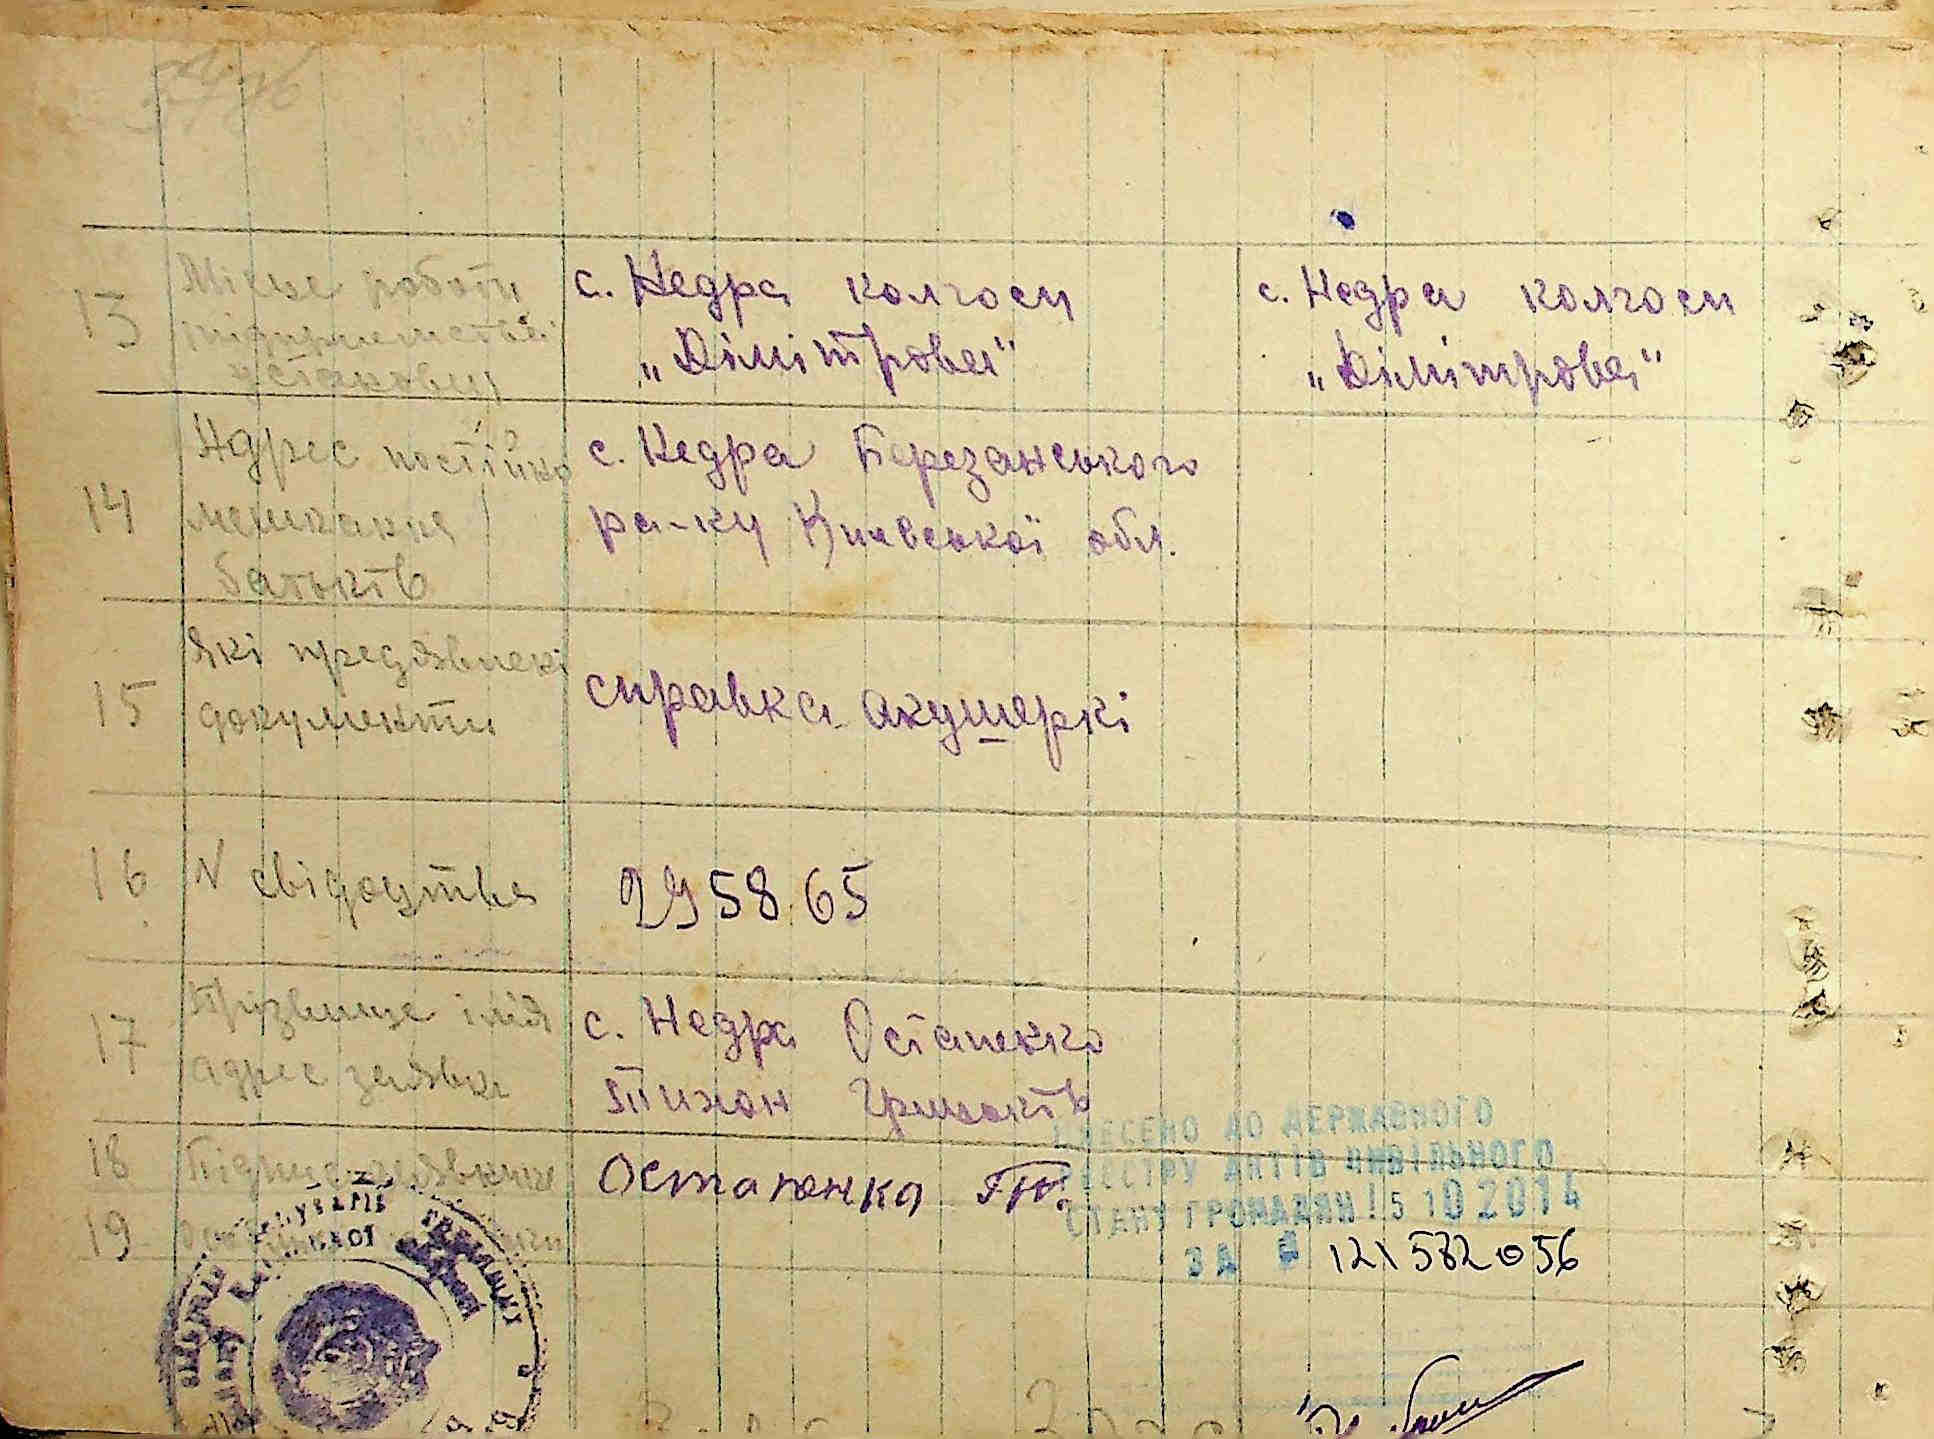 13 Місце роботи с. Недра колгосп с. Недра колгосп
підприємства „Дімітрова" „Дімітрова"
установи
14 Адрес постійно с. Недра Березанського
мешкання ра-ну Київської обл.
батьків
15 Які предявлені
документи справка акушеркі
16 N свідоцтва 295865
17 Прізвище імія с. Недра Остапенко
адрес заявн Тихон
18 Підпис заявника Остапенко
19
ВНЕСЕНО ДО ДЕРЖАВНОГО
РЕЄСТРУ АКТІВ ЦИВІЛЬНОГО
СТАНУ ГРОМАДЯН 15 10 2014
ЗА № 121582056